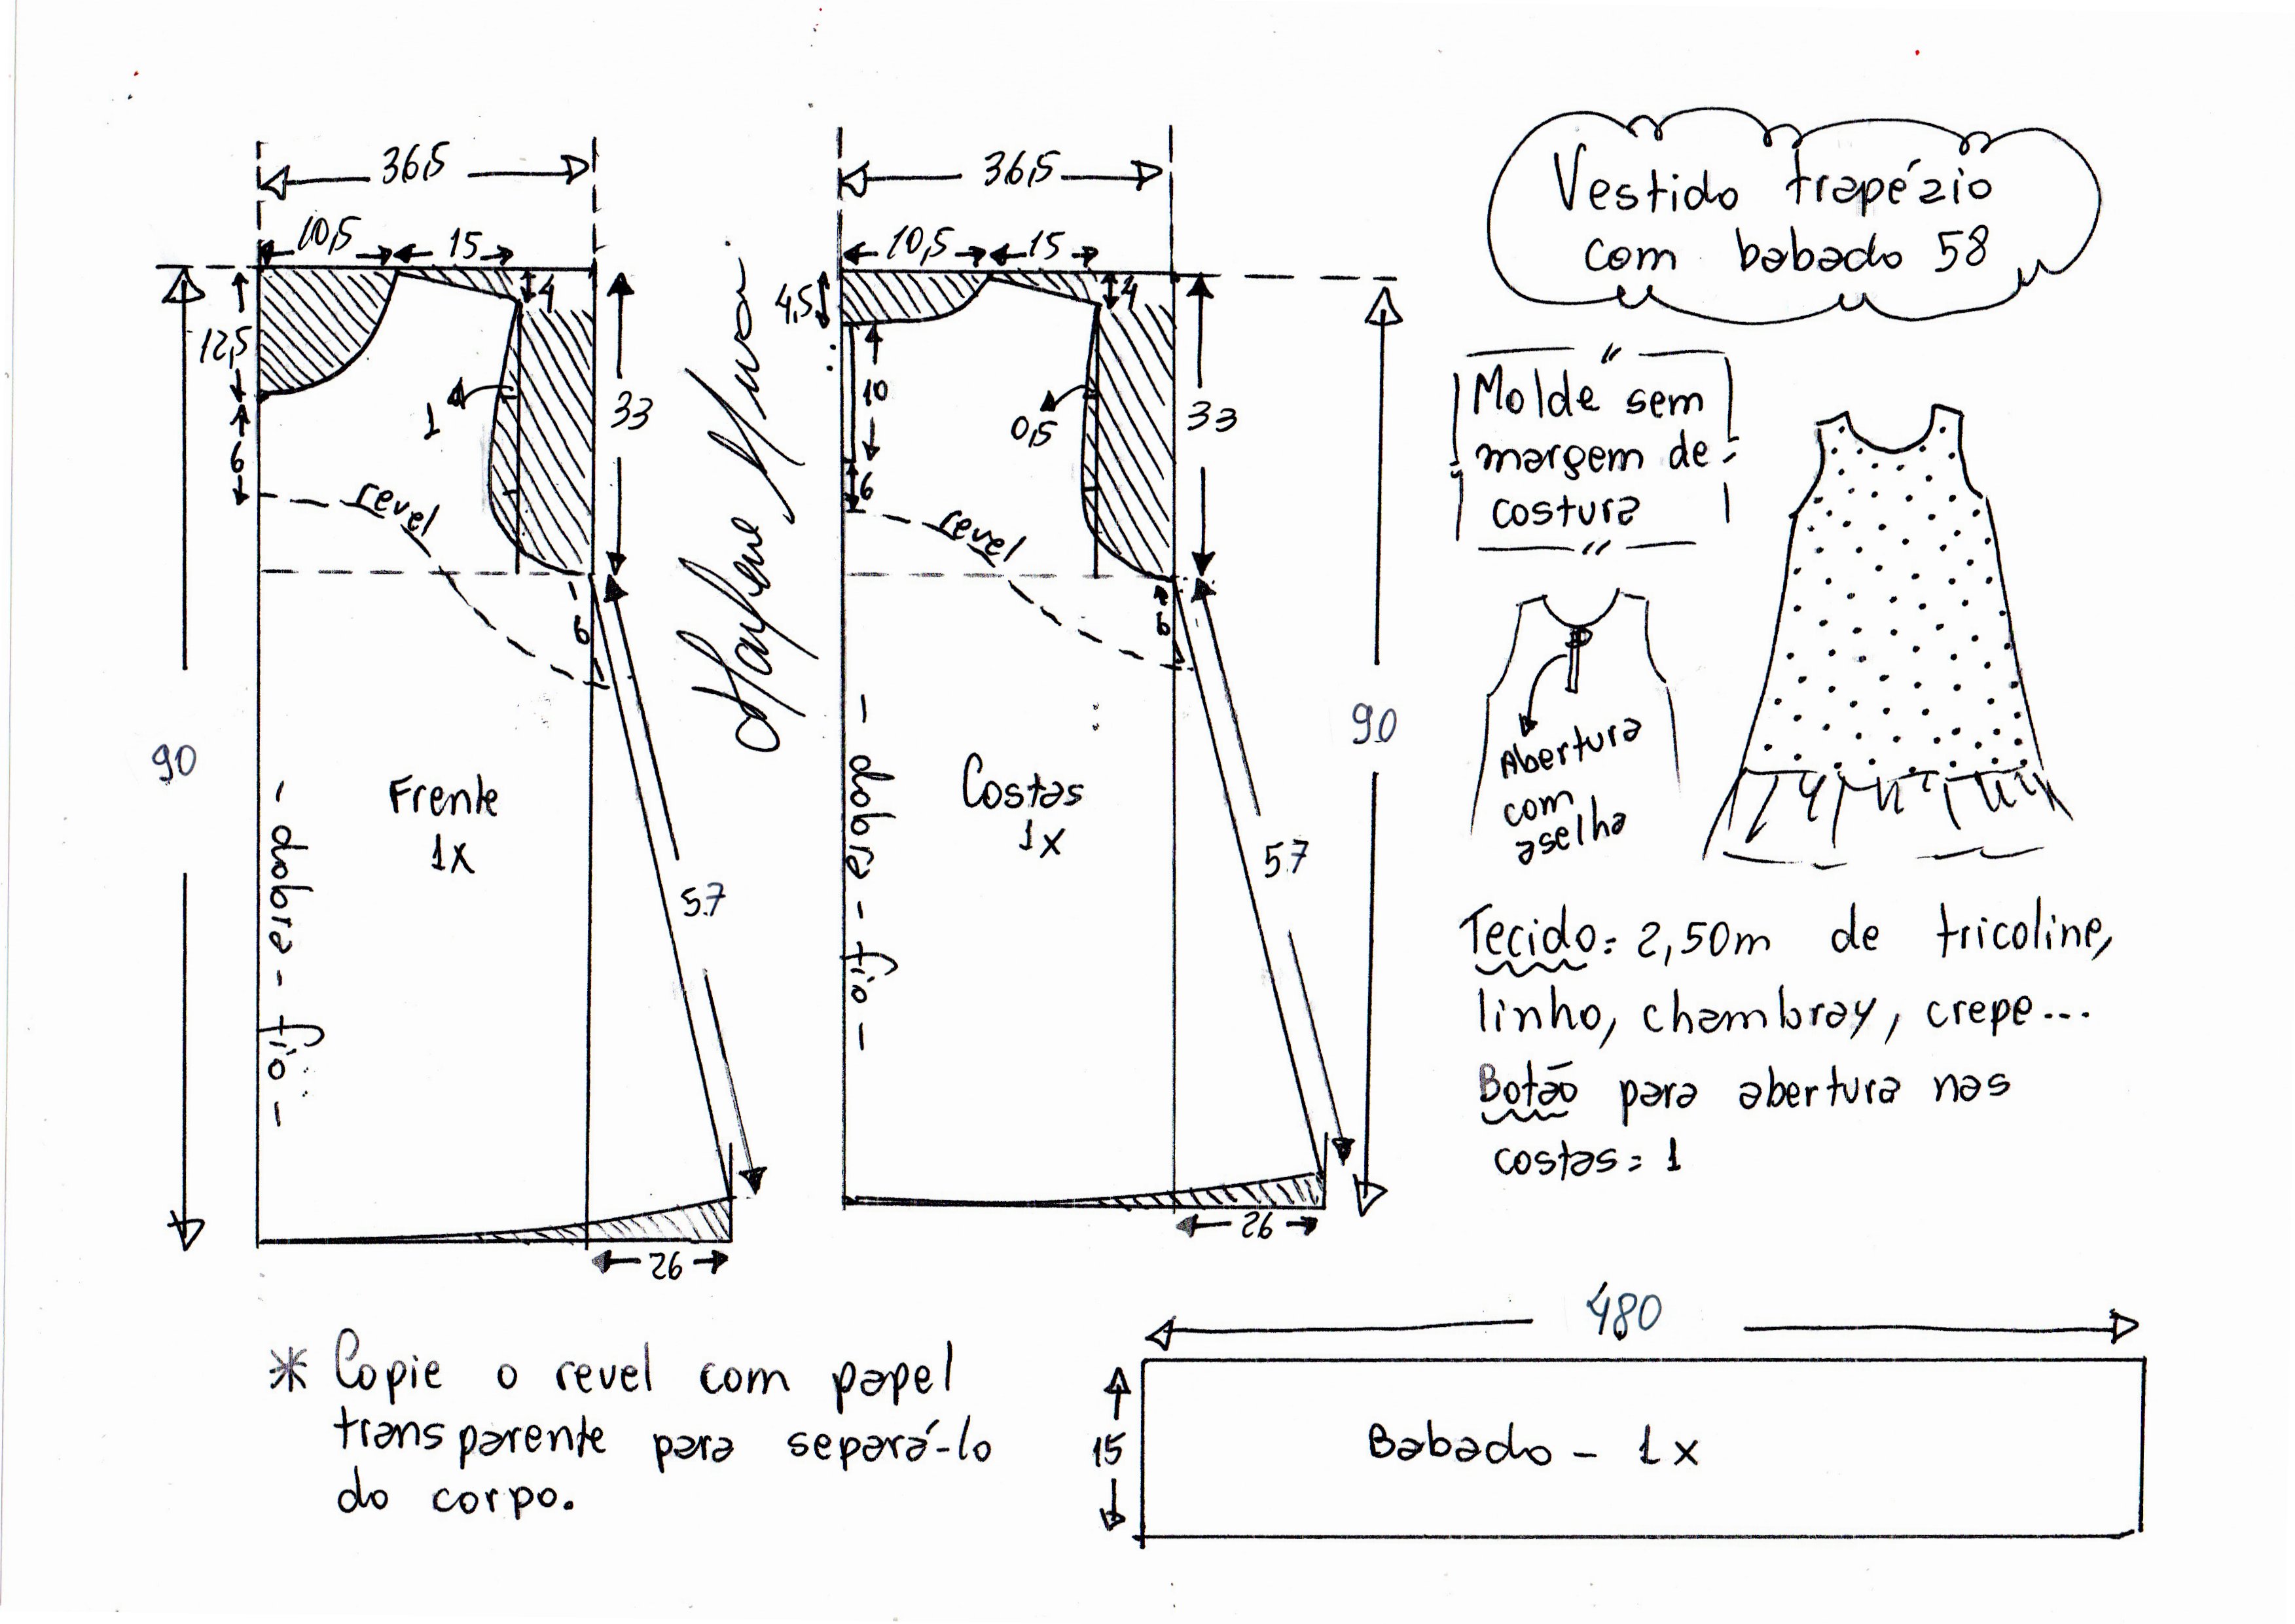 36,5
10,5
15
4
12,5
6
1
33
revel
6
90
Frente
1x
- dobra - fio -
57
26
36,5
10,5
15
4
4,5
10
6
0,5
33
revel
6
90
Costas
1x
- dobra - fio -
57
26
Vestido trapézio
com babado 58
Molde sem
margem de
costura
Abertura
com
aselha
Tecido: 2,50m de tricoline,
linho, chambray, crepe...
Botão para abertura nas
costas = 1
* Copie o revel com papel
transparente para separá-lo
do corpo.
480
15
Babado - 1x